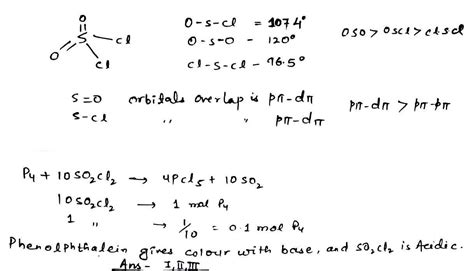 O
O
S
Cl
Cl
O-S-Cl = 107.4°
O-S-O - 120°
Cl-S-Cl - 96.5°
OSO > OSCl > ClSCl
S=O orbitals overlap is pπ-dπ
S-Cl " " pπ-dπ
pπ-dπ > pπ-pπ
P4 + 10SO2Cl2 → 4PCl5 + 10SO2
10SO2Cl2 → 1 mol P4
1 " → 1/10 = 0.1 mol P4
Phenolphthalein gives colour with base, and SO2Cl2 is Acidic.
Ans- I, II, III